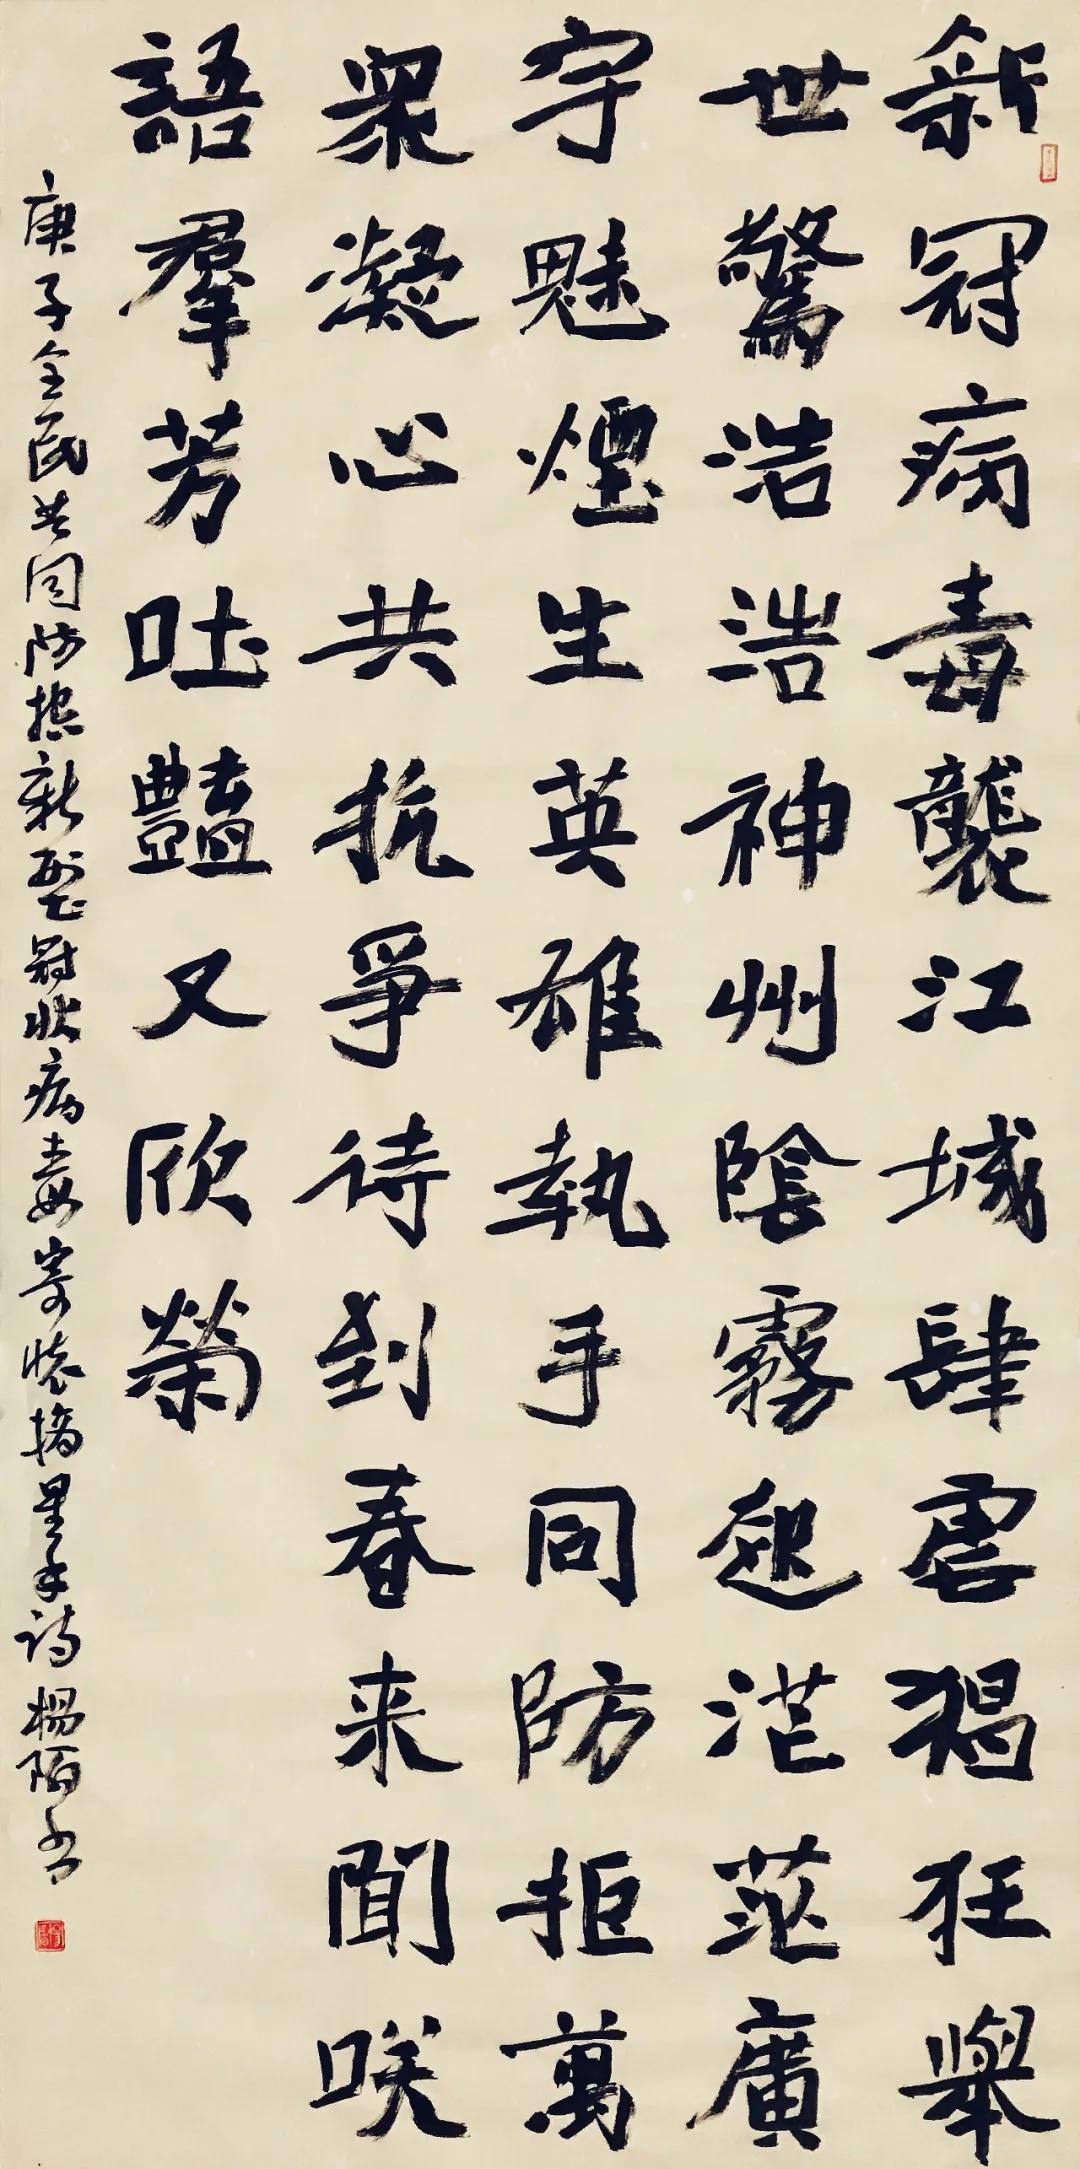 新冠病毒襲江城肆虐猖狂舉
世驚浩浩神州陰霧起茫茫廣
宇魅煙生英雄執手同防拒萬
衆凝心共抗爭待到春来聞咲
語羣芳吐豔又欣榮
庚子全民共同防控新型冠状病毒寄懷摘星手詩楊陌书